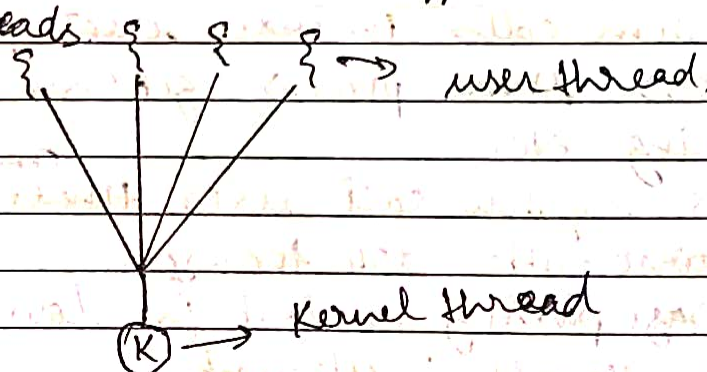 eads.
user thread.
Kernel thread
K